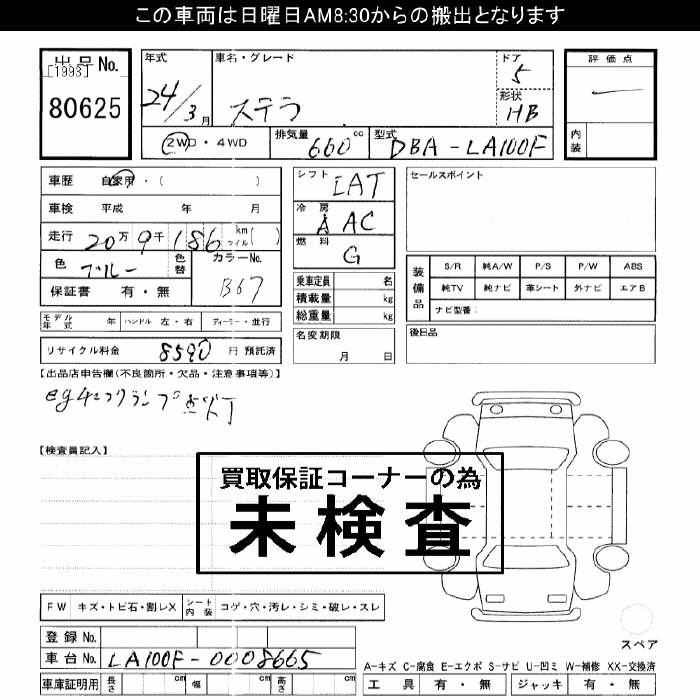 この車両は日曜日AM8:30からの搬出となります
出品No.
[1993]
80625
年式
24/3月
車名・グレード
ステラ
ドア
5
形状
HB
評価点
内装
2WD・4WD
排気量 660 cc
型式 DBA-LA100F
車歴 自家用・( )
車検 平成 年 月
走行 20万9千186 km マイル( )
色 ブルー
色替
カラーNo. B67
保証書 有・無
シフト IAT
冷房 A AC
燃料 G
乗車定員 名
積載量 kg
総重量 kg
セールスポイント
装備品
S/R 純A/W P/S P/W ABS
純TV 純ナビ 革シート 外ナビ エアB
ナビ型番:
モデル年式 年 ハンドル 左・右 ディーラー・並行
名変期限
月 日
後日品
リサイクル料金 8590 円 預託済
【出品店申告欄(不良箇所・欠品・注意事項等)】
egチェックランプ点灯
【検査員記入】
買取保証コーナーの為
未検査
FW キズ・トビ石・割レX シート内装 コゲ・穴・汚レ・シミ・破レ・スレ
スペア
登録No.
車台No. LA100F-0008665
車庫証明用 長さ cm 幅 cm 高さ cm
A-キズ C-腐食 E-エクボ S-サビ U-凹ミ W-補修 XX-交換済
工具 有・無 ジャッキ 有・無